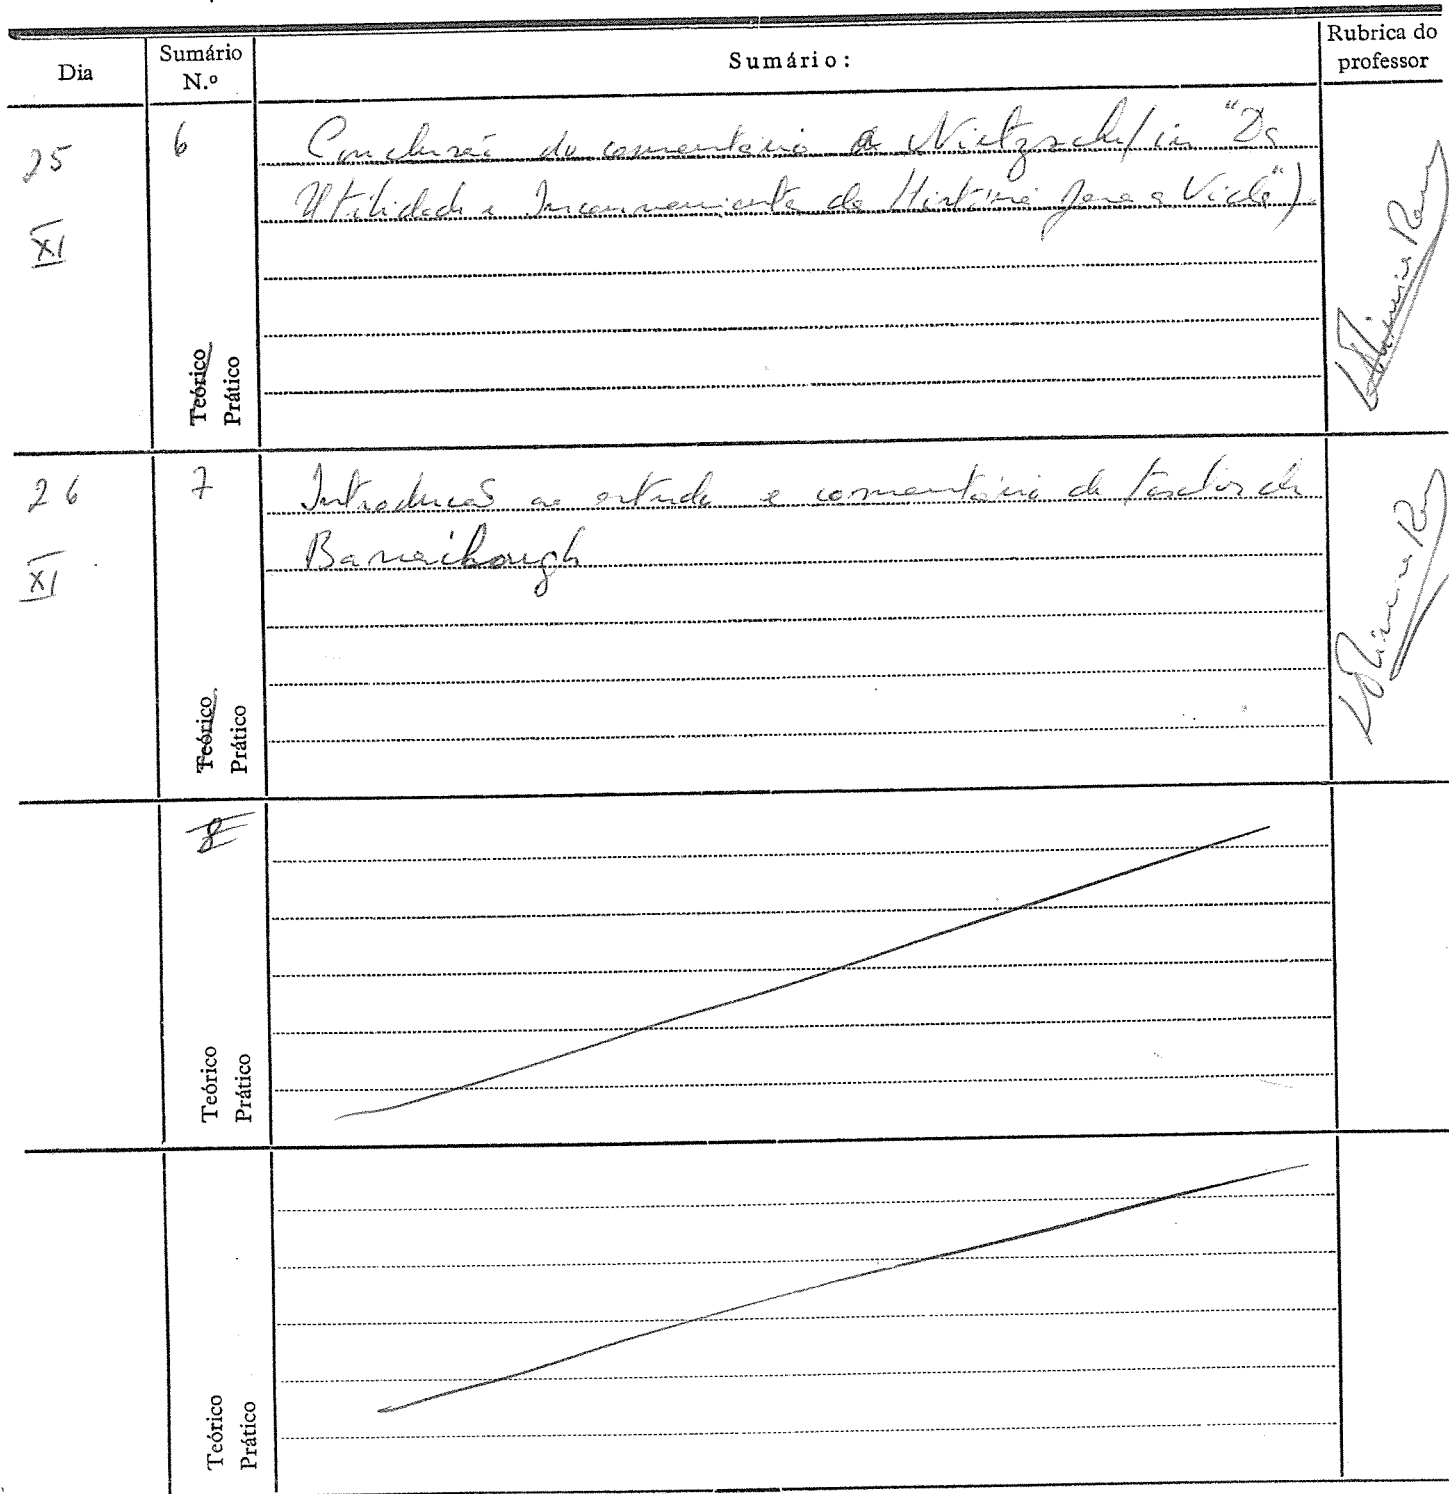 Dia
Sumário N.º
Sumário:
Rubrica do professor
25
XI
6
Conclusão do comentário a Nietzsche (in "Da
Utilidade e Inconveniente da História para a Vida").
Teórico
Prático
26
XI
7
Introdução ao estudo e comentário de textos de
Barraclough
Teórico
Prático
8
Teórico
Prático
Teórico
Prático